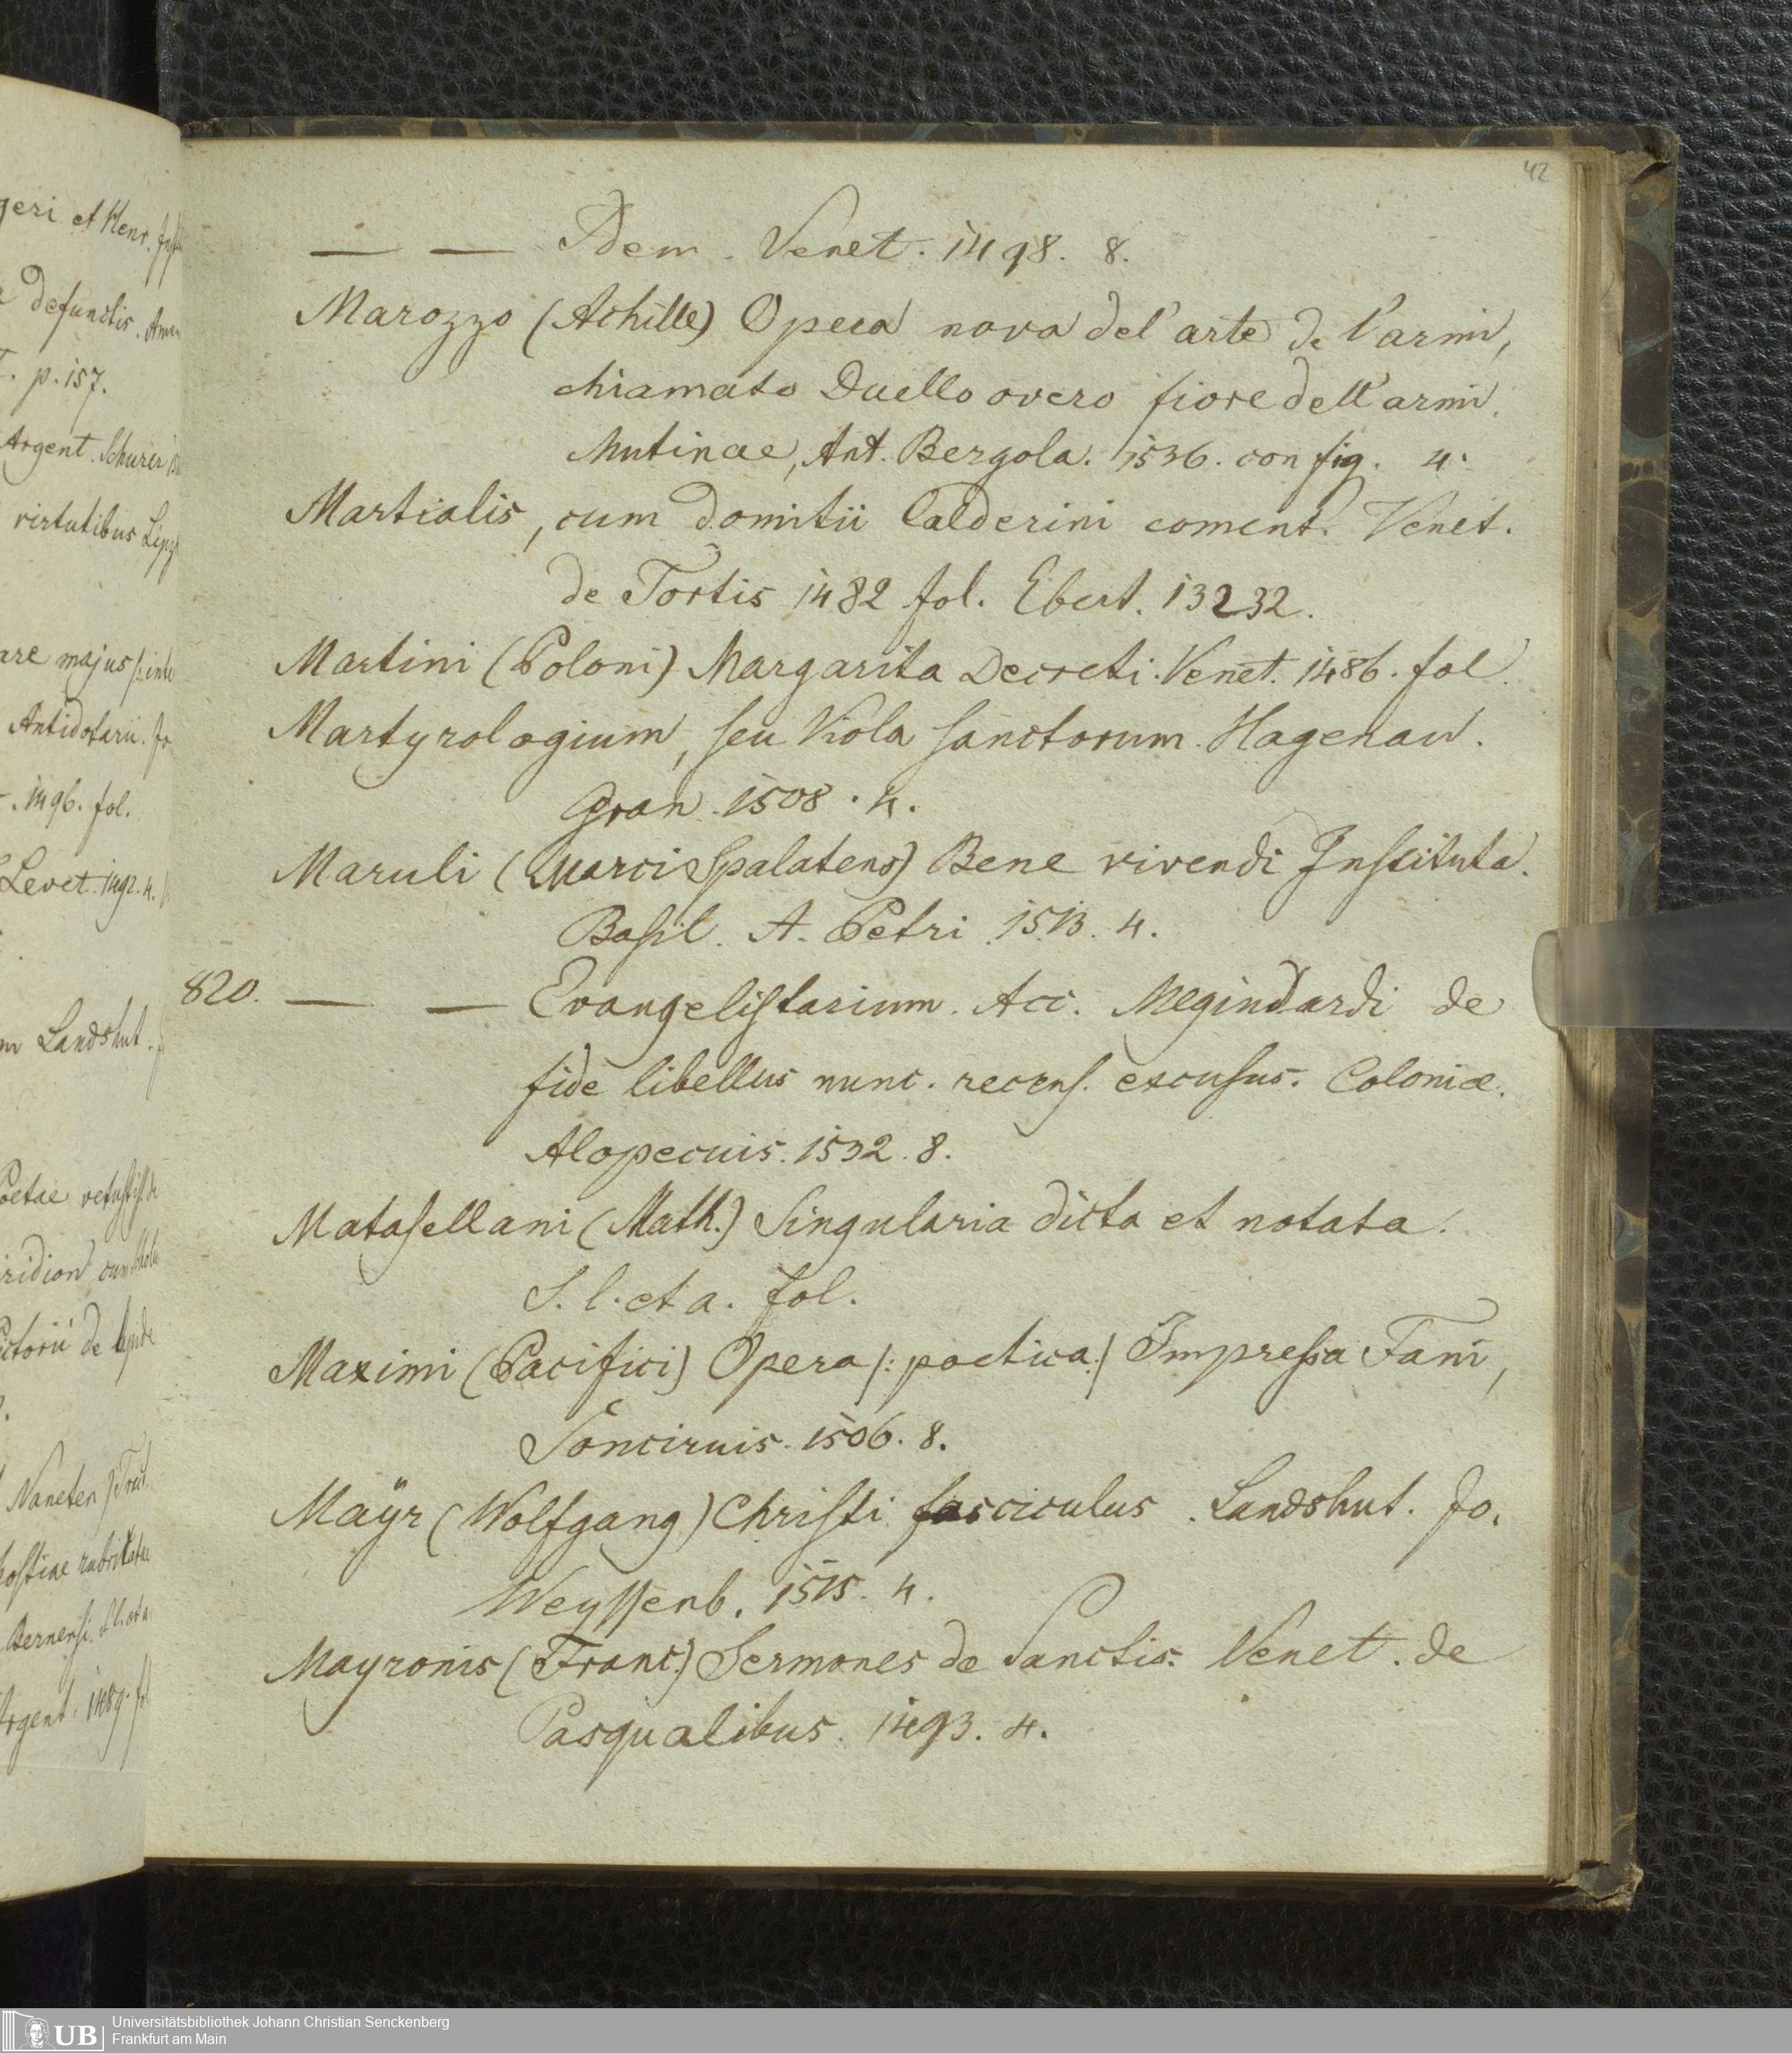 42
— — Idem. Venet. 1498. 8.
Marozzo (Achille) Opera nova del' arte de l'armi,
chiamato Duello overo fiore dell' armi.
Mutinae, Ant. Bergola. 1536. con fig. 4.
Martialis, cum Domitii Calderini coment. Venet.
de Tortis 1482 fol. Ebert. 13232.
Martini (Poloni) Margarita Decreti. Venet. 1486. fol.
Martyrologium, seu Viola Sanctorum. Hagenau.
Gran. 1508. 4.
Maruli (Marci Spalatens) Bene vivendi Instituta.
Basil. A. Petri 1513. 4.
820. — — Evangelistarium. Acc. Megindardi de
fide libellus nunc. recens. excusus. Coloniæ.
Alopecuis. 1532. 8.
Matasellani (Math.) Singularia dicta et notata.
S. l. et a. fol.
Maximi (Pacifici) Opera /: poetica :/ Impressa Fani,
Sonciruis. 1506. 8.
Maÿr (Wolfgang) Christi fasciculus. Landshut. Jo.
Weyssenb. 1515. 4.
Mayronis (Franc.) Sermones de Sanctis. Venet. de
Pasqualibus. 1493. 4.
geri et Henr.
defunctis.
p. 157.
Argent. Schurer
virtutibus
are majus
Antidotarii.
1496. fol.
Levet. 1492. 4.
Landshut.
Poetae
Argent. 1489.
UB
Universitätsbibliothek Johann Christian Senckenberg
Frankfurt am Main